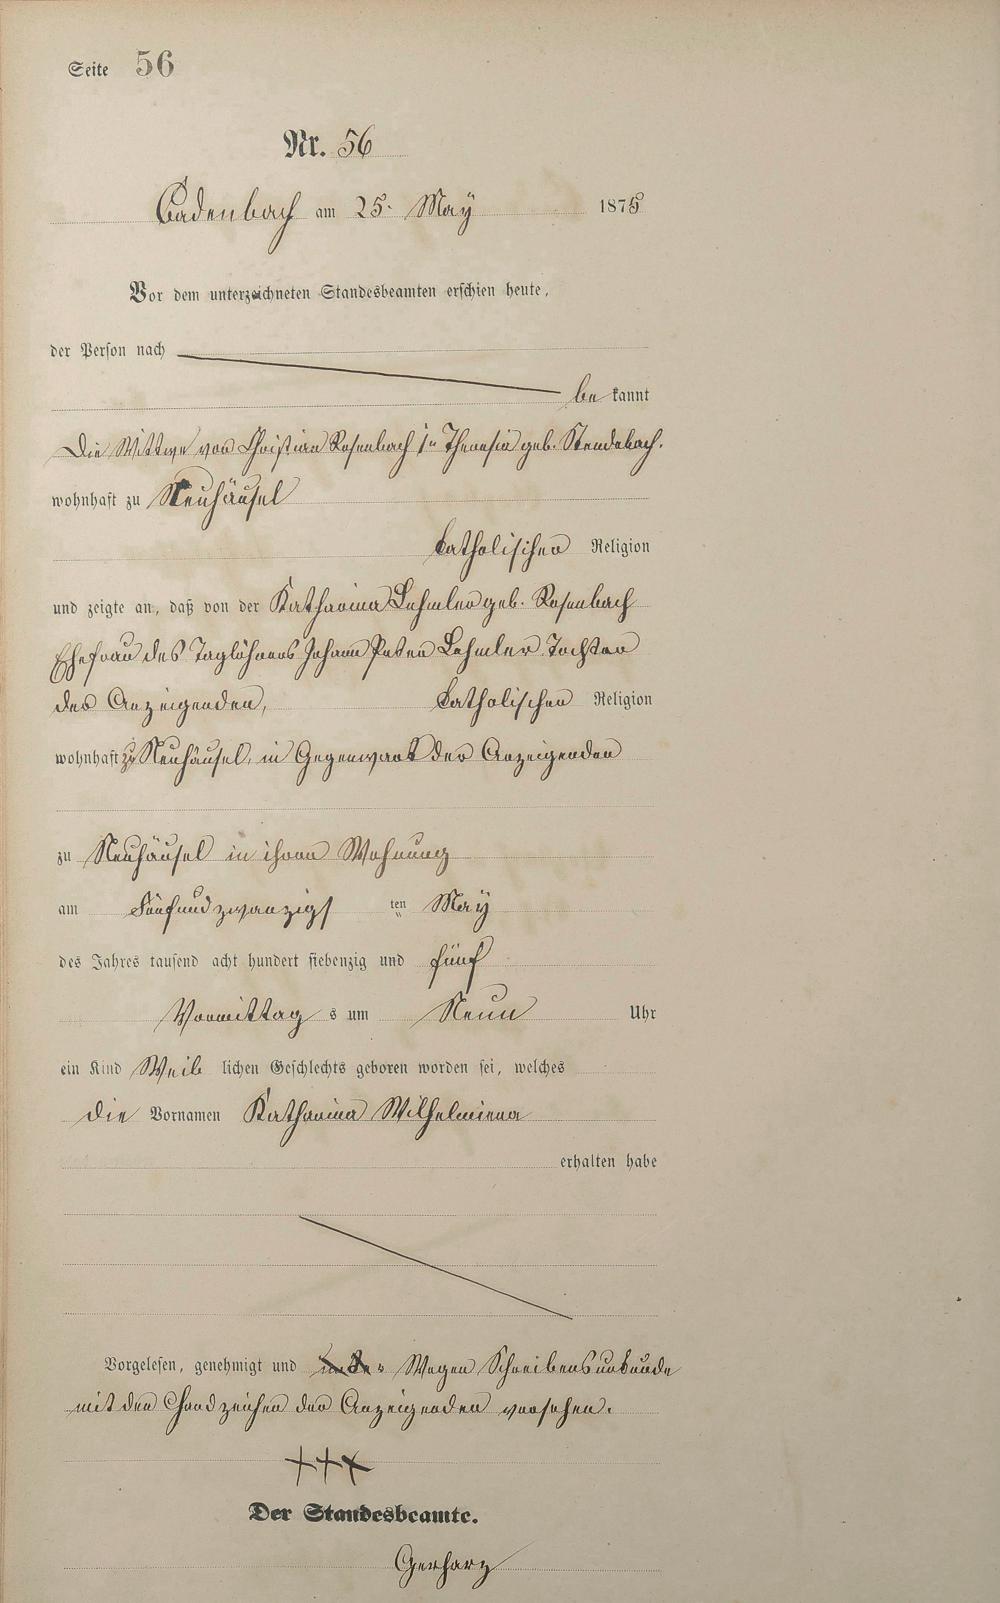 Seite 56
Nr. 56
Cadenbach am 25. May 1875
Vor dem unterzeichneten Standesbeamten erschien heute,
der Person nach
be kannt
Die Wittwe von Christian Rosenbach Theresia geb. Stendebach.
wohnhaft zu Neuhäusel
katholischer Religion
und zeigte an, daß von der Katharina Lehmler geb. Rosenbach
Ehefrau des Taglöhners Johann Peter Lehmler Tochter
der Anzeigenden, katholischer Religion
wohnhaft zu Neuhäusel, in Gegenwart der Anzeigenden
zu Neuhäusel in ihrer Wohnung
am Fünfundzwanzigs ten May
des Jahres tausend acht hundert siebenzig und fünf
Vormittag s um Neun Uhr
ein Kind Weib lichen Geschlechts geboren worden sei, welches
die Vornamen Katharina Wilhelmiena
erhalten habe
Vorgelesen, genehmigt und Wegen Schreibensunkunde
mit den Handzeichen der Anzeigenden versehen.
+++
Der Standesbeamte.
Gerharz